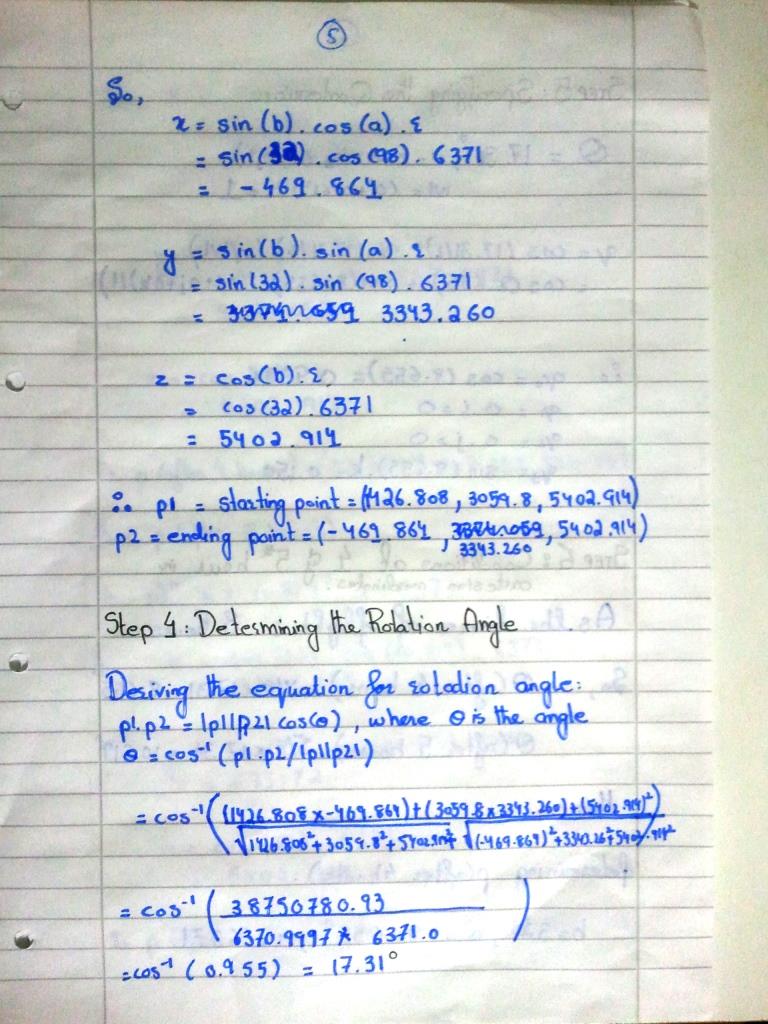 5
So,
x = sin (b). cos (a). r
= sin (32). cos (98). 6371
= -469.864
y = sin(b). sin (a). r
= sin (32). sin (98). 6371
= 3343.260
z = cos(b). r
= cos (32). 6371
= 5402.914
∴ p1 = starting point = (1426.808, 3059.8, 5402.914)
p2 = ending point = (-469.864, 3343.260, 5402.914)
Step 4: Determining the Rotation Angle
Deriving the equation for rotation angle:
p1.p2 = |p1||p2| cos(θ), where θ is the angle
θ = cos⁻¹ (p1.p2/|p1||p2|)
= cos⁻¹ ( (1426.808 x -469.864) + (3059.8 x 3343.260) + (5402.914)²
√1426.808² + 3059.8² + 5402.914² √(-469.864)² + 3343.26² + 5402.914² )
= cos⁻¹ ( 38750780.93
6370.9997 * 6371.0 )
= cos⁻¹ (0.955) = 17.31°